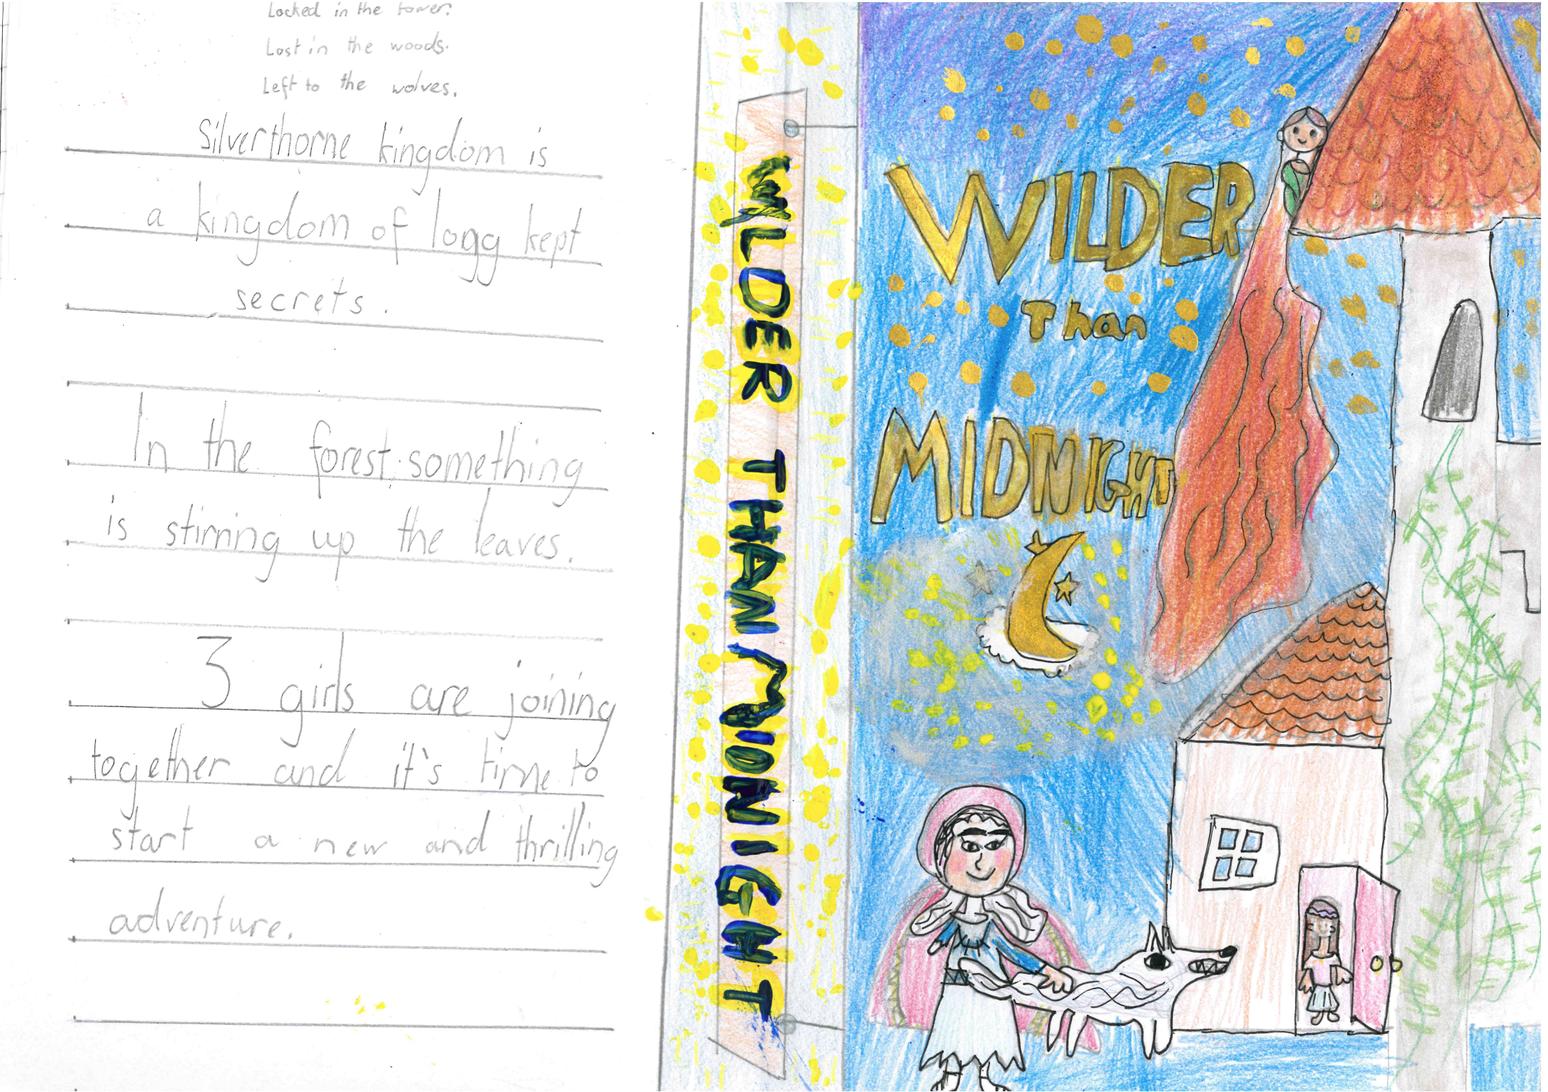 Locked in the tower.
Lost in the woods.
Left to the wolves.
Silverthorne kingdom is
a kingdom of logg kept
secrets.
In the forest something
is stirring up the leaves.
3 girls are joining
together and it's time to
start a new and thrilling
adventure.
WILDER THAN MIDNIGHT
WILDER
Than
MIDNIGHT